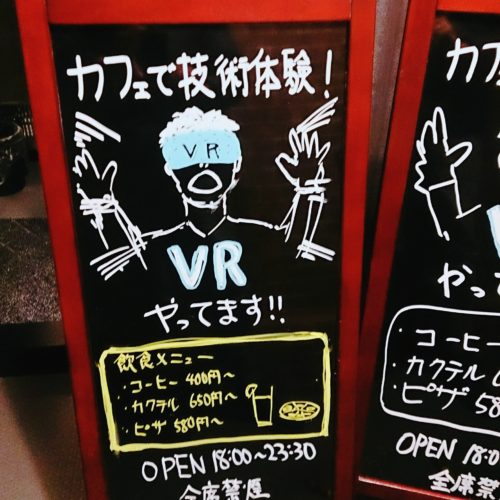 カフェで技術体験!
VR
VR
やってます!!
飲食メニュー
・コーヒー 400円~
・カクテル 650円~
・ピザ 580円~
OPEN 18:00~23:30
全席禁煙
カフ
や
・コーヒー
・カクテル
・ピザ 58
OPEN 18:0
全席禁